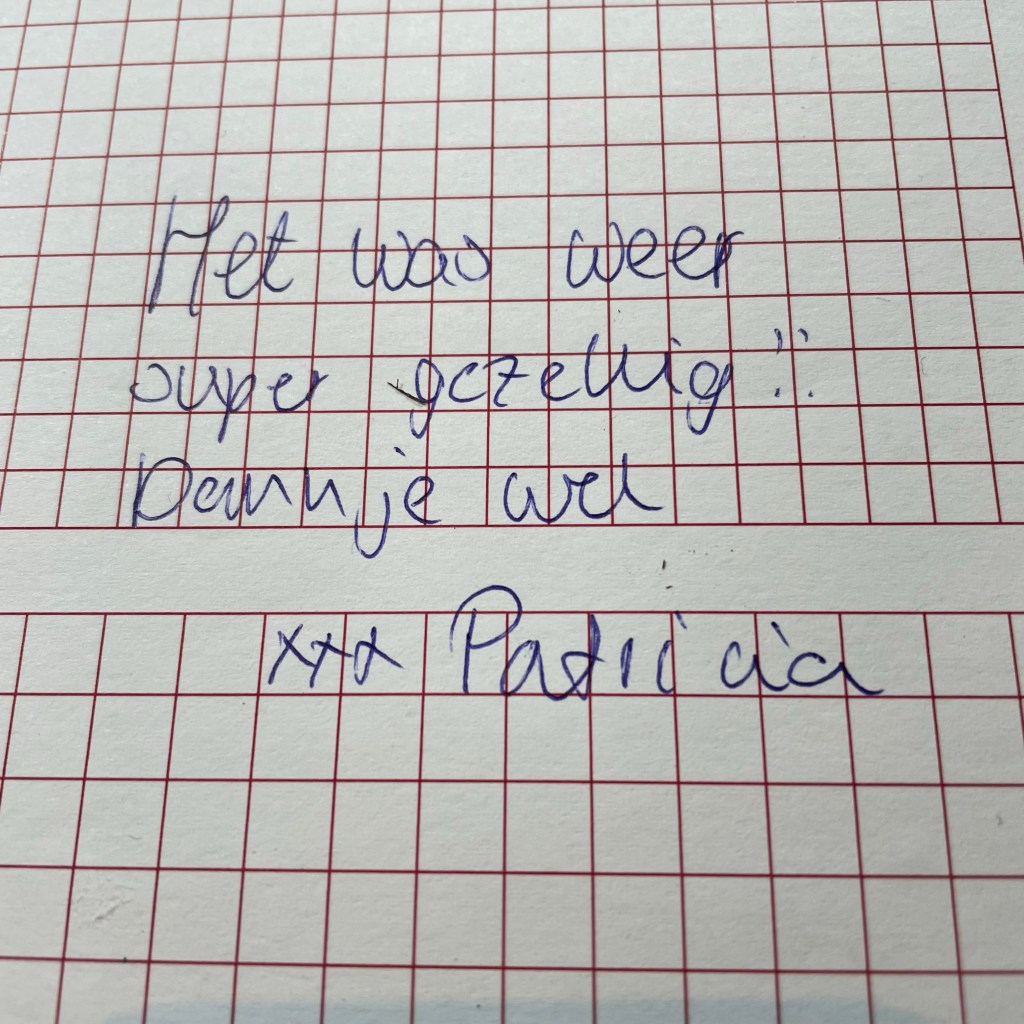 Het was weer
super gezellig!!
Dank je wel
xxx Patricia